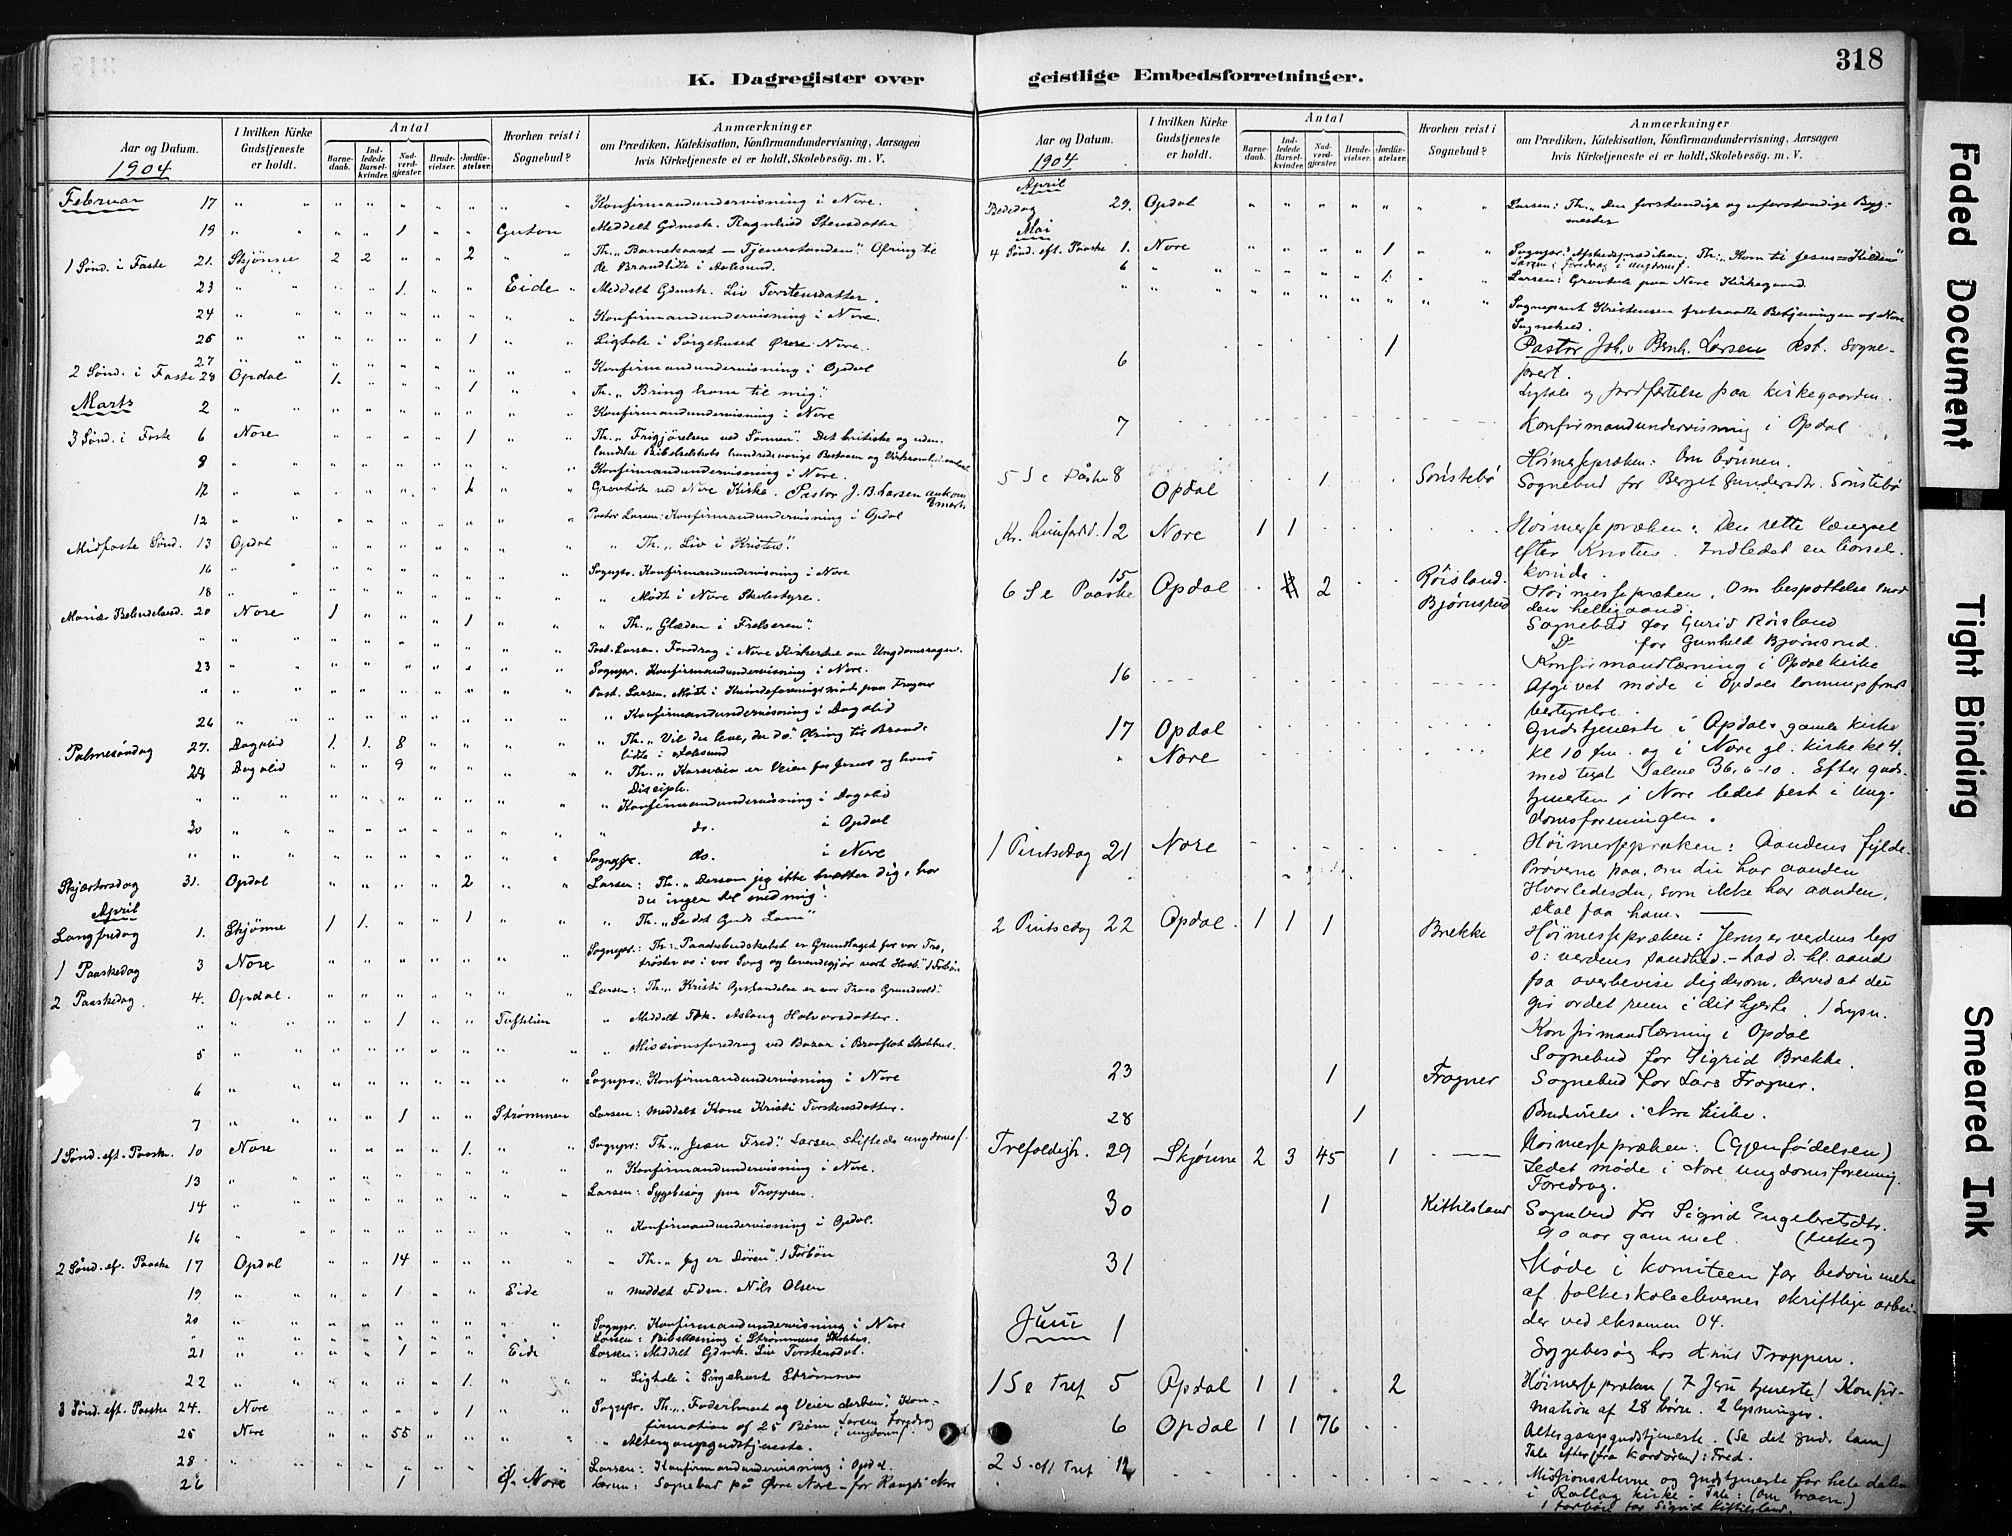 K. Dagregister over geistlige Embedsforretninger.
318
Aar og Datum.
1904
I hvilken Kirke Gudstjeneste er holdt.
Antal
Barnedaab.
Indledede Barselkvinder.
Nadverdgjæster.
Brudevielser.
Jordfæstelser.
Hvorhen reist i Sognebud?
Anmærkninger
om Prædiken, Katekisation, Konfirmandundervisning, Aarsagen
hvis Kirketjeneste ei er holdt, Skolebesøg. m. V.
Februar 17 Konfirmandundervisning i Nore.
19 1 Meddelt Gdmsk. Ragnhild Stensdatter
1 Sønd. i Faste 21. Skjønne 2 2 2 Th. „Barnekaaret – Tjenerstanden". Ofring til
de Brandlidte i Aalesund.
23 1 Eide Meddelt Gdmsk. Liv Torstensdatter.
24 Konfirmandundervisning i Nore.
25 1 Ligtale i Sørgehuset Øvre Nore.
27 Konfirmandundervisning i Opdal
2 Sønd. i Faste 28 Opdal 1. 1 Th. „Bring ham til mig."
Marts 2 Konfirmandundervisning i Nore
3 Sønd. i Faste 6 Nore 1 Th. „Frigjørelsen ved Sønnen". Det britiske og uden-
landske Bibelselskabs hundredeaarige Bestaaen og
9 Konfirmandundervisning i Nore.
12 1 Gravtale ved Nore Kirke. Pastor J. B. Larsen ankom
12 Pastor Larsen: Konfirmandundervisning i Opdal
Midfaste Sønd. 13 Opdal Th. „Liv i Kristus".
16 Sognepr. Konfirmandundervisning i Nore
18 Mødt i Nore Skolestyre.
Mariæ Bebudelsesd. 20 Nore 1 1 Th. „Glæden i Frelseren".
Past. Larsen. Foredrag i Nore Kirke om Ungdomssagen.
23 Sognepr. Konfirmandundervisning i Nore.
Past. Larsen. Mødt i Kvindeforeningsmøde paa Fragner
26 Konfirmandundervisning i Dagalid
Palmesøndag 27. Dagalid 1. 1. 8 Th. „Vil du leve, du dø". Ofring til Brand-
lidte i Aalesund
28 Dagalid 9 Th. „Korsveien er Veien for Jesus og hans
Disciple.
Konfirmandundervisning i Dagalid
30 do. i Opdal
Sognepr. do. i Nore
Skjærtorsdag 31. Opdal 2 Larsen: Th. „Dersom jeg ikke tvætter dig, har
du ingen del med mig".
April
Langfredag 1. Skjønne 1 1. 1 Th. „Se det Guds Lam"
1 Paaskedag 3 Nore Sognepr.: Th. „Paaskebudskabet er Grundlaget for vor Tro,
trøster os i vor Sorg og levendegjør vort Haab." 1 Forbøn
2 Paaskedag 4. Opdal. Larsen: Th. „Kristi Opstandelse er vor Troes Grundvold".
1 Tuftelien Meddelt Aslaug Halvorsdatter.
5 Missionsforedrag ved Bazar i
6 Sognepr.: Konfirmandundervisning i Nore
7 1 Strømmen Larsen: Meddelt Kone Kristi Torstensdatter.
1 Sønd. eft. Paaske. 10 Nore 1. Sognepr: Th. „Jesu Fred". Larsen stiftede ungdomsf.
Konfirmandundervisning i Nore.
13 Larsen: Sygebesøg paa Troppen.
14
16 Konfirmandundervisning i Opdal.
2 Sønd. ef. Paaske 17 Opdal 14 Th. „Jeg er Døren". 1 Forbøn
19 1 Eide meddelt Fdm. Nils Olsen
20 Sognepr. Konfirmandundervisning i Nore
Larsen: Bibellæsning i Strømmens Skolehus.
21 1 Eide Larsen: Meddelt Gdmk. Liv Torstensdat.
22 1. Ligtale i Sørgehuset Strømmen
3 Sønd. eft. Paaske 24. Nore 1 Sognepr. Th. „Faderhuset og Veien derhen". Kon-
firmation af 25 Børn Larsen foredrag i ungdomsf.
25 Nore 55 Altergangsgudstjeneste.
28 Larsen: Konfirmandundervisning i Opdal.
26 1 Ø. Nore Larsen: Sognebud på Øvre Nore – for
Aar og Datum.
1904
I hvilken Kirke Gudstjeneste er holdt.
Antal
Barnedaab.
Indledede Barselkvinder.
Nadverdgjæster.
Brudevielser.
Jordfæstelser.
Hvorhen reist i Sognebud?
Anmærkninger
om Prædiken, Katekisation, Konfirmandundervisning, Aarsagen
hvis Kirketjeneste ei er holdt, Skolebesøg. m. V.
April
Bededag 29. Opdal Larsen: Th. „Den forstandige og uforstandige Byg-
mester
Mai
4 Sønd. eft. Paaske 1. Nore 1 Sognepr: Afskedsprædiken. Th: „Kom til Jesus – Kilden"
Larsen: foredrag i ungdomsf.
6 1 Larsen: Gravtale paa Nore Kirkegaard.
Sogneprest Kristensen fratraadte Betjeningen af Nore
Sognekald.
Pastor Joh. Bernh. Larsen kst. Sogne-
prest.
6 1 Ligtale og jordfæstelse paa kirkegaarden.
7 Konfirmandundervisning i Opdal
5 S e Påske 8 Opdal 1 Sønstebø Høimessepræken: Om bønnen.
Sognebud for Berget Gundersdtr. Sønstebø
Kr. himfartsd. 12 Nore 1 1 Høimessepræken: Den rette længsel
efter Kristus. Indledet en barsel-
kvinde.
6 S e Paaske 15 Opdal 2 Røisland. Bjørnsrud Høimessepræken. Om bespottelse mod
den helligaand.
Sognebud for Gurid Røisland
Do for Gunhild Bjørnsrud.
16 Konfirmandlæsning i Opdal kirke
Afgivet møde i Opdals
17 Opdal Gudstjeneste i Opdals gamle kirke
Nore kl 10 fm. og i Nore gl. kirke kl 4.
med text Salme 36. 6-10. Efter guds-
tjenesten i Nore ledet fest i ung-
domsforeningen.
1 Pintsedag 21 Nore Høimessepræken: Aandens fylde.
Prøverne paa, om du har aanden
Hvorledes du, som ikke har aanden,
skal faa ham.
2 Pintsedag 22 Opdal 1 1 1 Brekke Høimessepræken: Jesus er verdens lys
o: verdens sandhed. – Lad d. hl. aand
faa overbevise dig derom, derved at du
gir ordet rum i dit hjerte. 1 Lysn.
Konfirmandlæsning i Opdal
Sognebud for Sigrid Brekke.
23 1 Fragner Sognebud for Lars Fragner.
28 1 Brudevielse i Nore kirke.
Trefoldigh. 29 Skjønne 2 3 45 1 Høimessepræken: (Gjenfødelsen)
Ledet møde i Nore ungdomsforening.
Foredrag.
30 1 Kittilsland Sognebud for Sigrid Engebretsdtr.
90 aar gammel. (enke)
31 Møde i komiteen for bedømmelse
af folkeskoleelevernes skriftlige arbei-
der ved eksamen 04.
Juni 1 Sygebesøg hos Knut Troppen.
1 S e Tref 5 Opdal 1 1 2 Høimessepræken (I Jesu tjeneste) Konfir-
mation af 28 børn. 2 lysninger.
6 Opdal 1 1 76 Altergangsgudstjeneste. (Se det guds lam)
Tale efter (fra kordøren): Fred.
2 S. eft Tref 12 Missionsstevne og gudstjeneste for hele dalen
i Rollag kirke. Tale: (Om troen)
1 forbøn for Sigrid Kittilsland.
Faded Document
Tight Binding
Smeared Ink